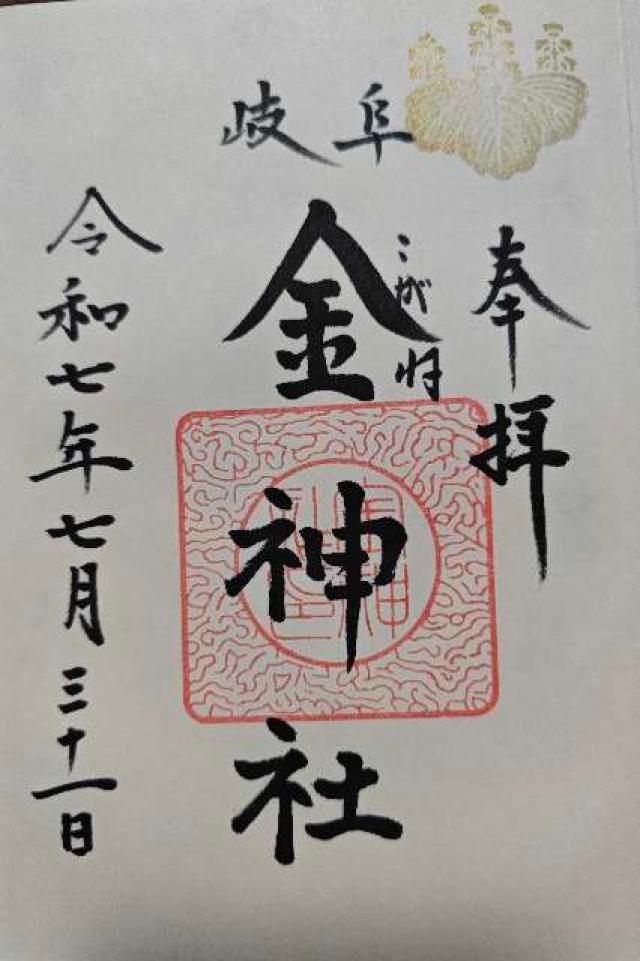 奉拝
岐阜
こがね
金神社
令和七年七月三十一日